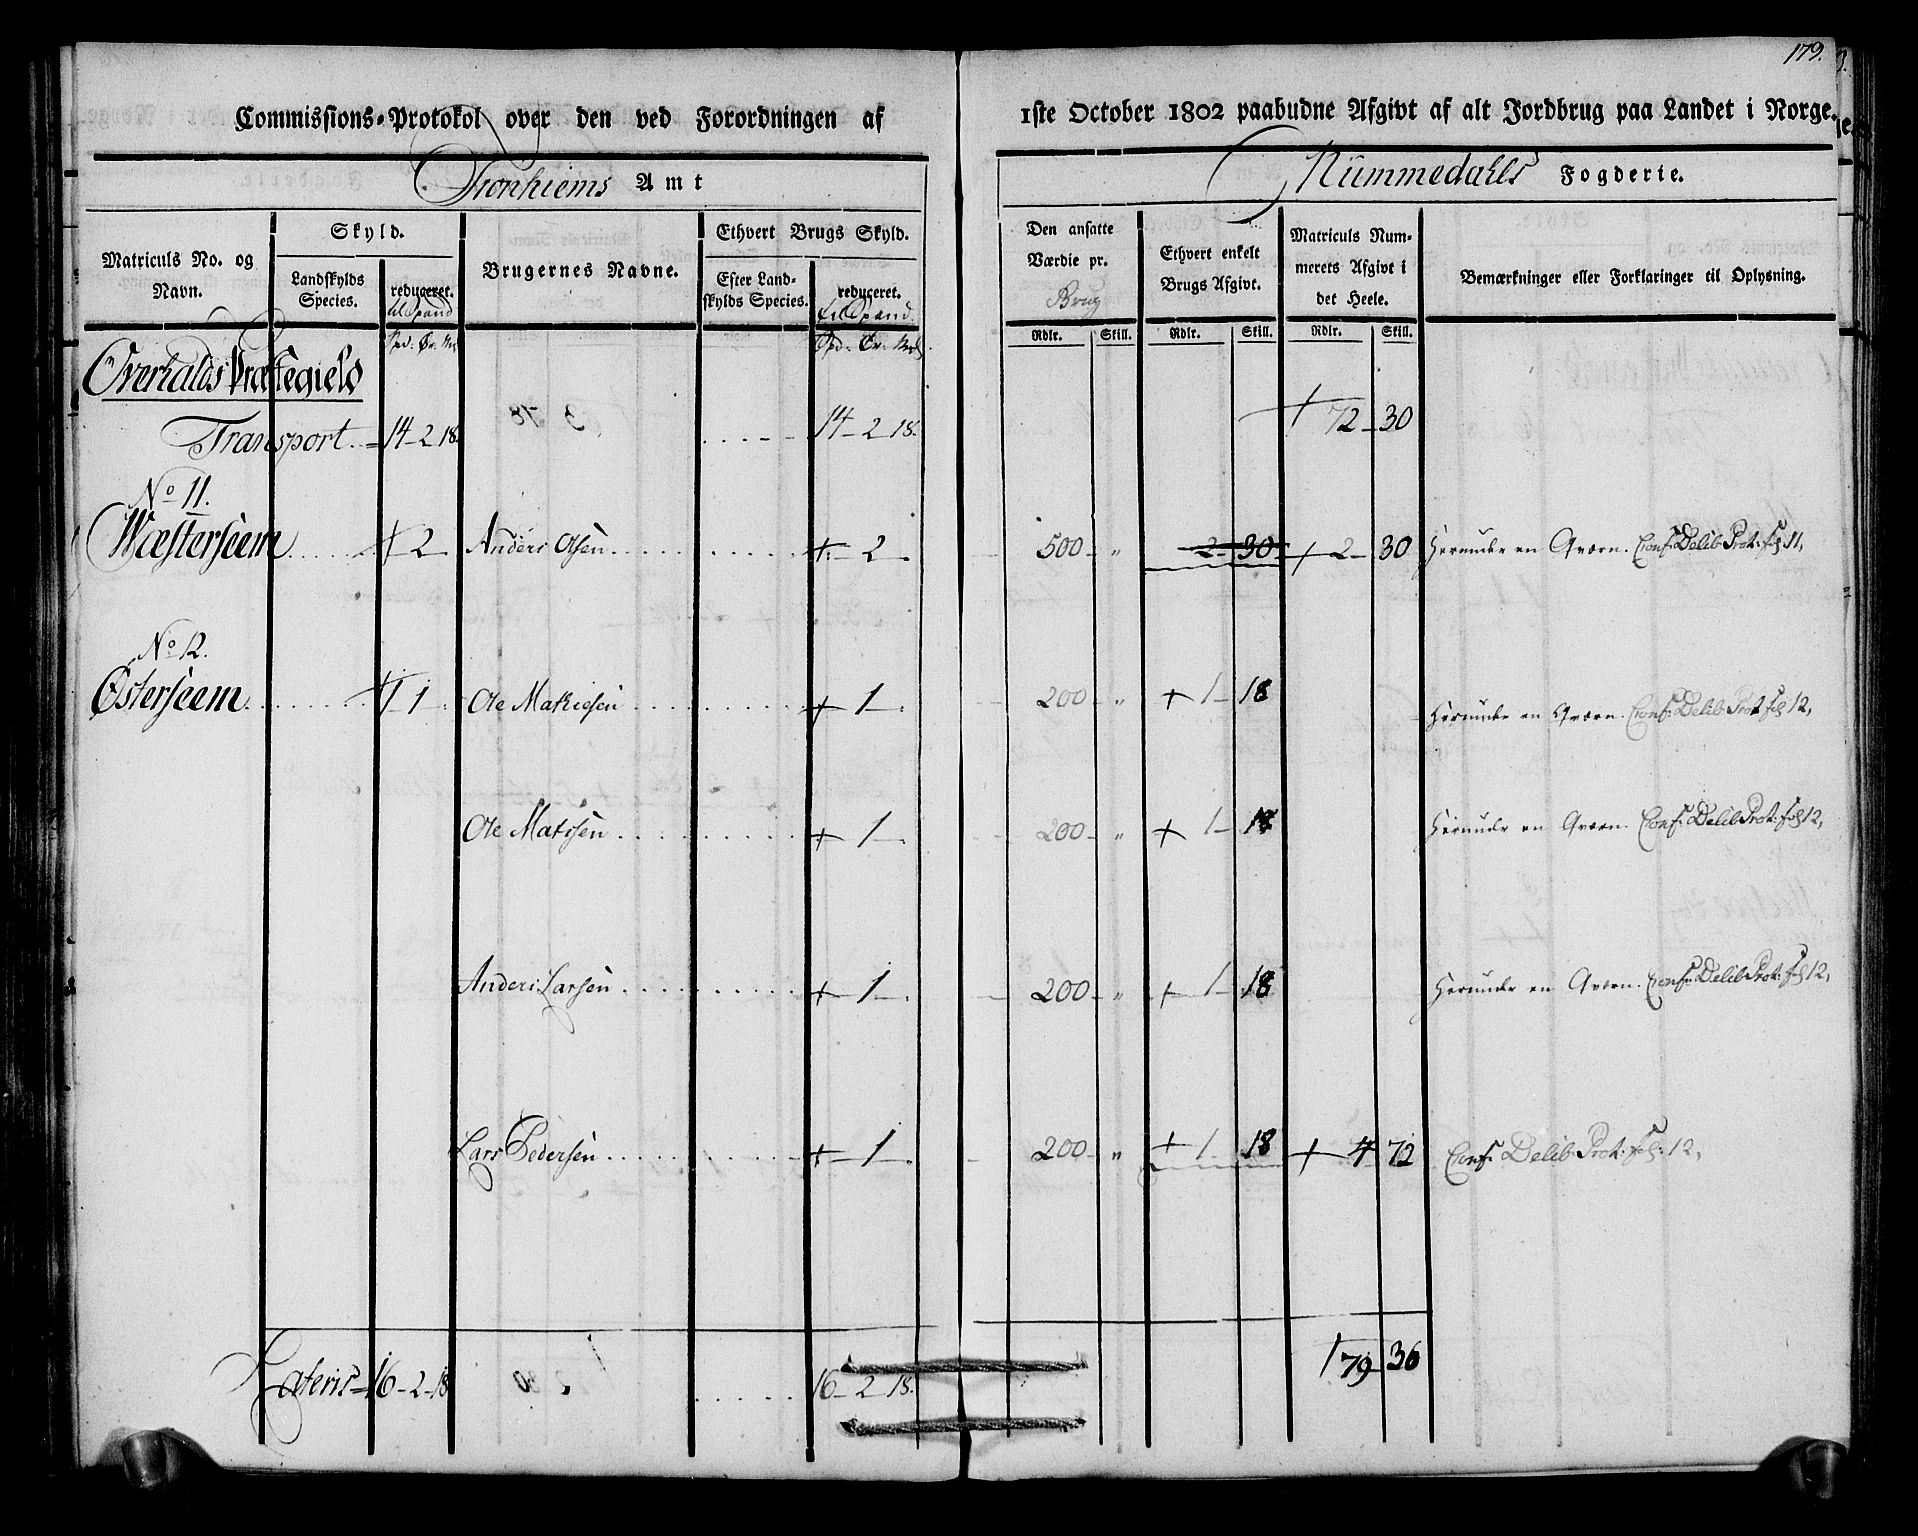 179.
Commissions-Protokol over den ved Forordningen af 1ste October 1802 paabudne Afgivt af alt Jordbrug paa Landet i Norge.
Tronhiems Amt Nummedahls Fogderie.
Matriculs No. og Navn.
Skyld.
Landskylds Species.
reduceret. til Spand
Brugernes Navne.
Ethvert Brugs Skyld.
Efter Landskylds Species.
reduceret. til Spand.
Den ansatte Værdie pr. Brug
Ethvert enkelt Brugs Afgivt.
Matriculs Nummerets Afgivt i det Heele.
Bemærkninger eller Forklaringer til Oplysning.
Rdlr. Skill. Rdlr. Skill. Rdlr. Skill.
Overhalds Præstegield
Transport 14 - 2 18. 14 - 2 18. 72 - 30
No 11.
Wæsterseem 2 Anders Olsen 2 500 - " 2 - 30 2 - 30 Herunder en Qværn. Conf: Delib: Prot: fol 11,
No 12.
Østerseem 1 Ole Mathiesen 1 200 " 1 - 18 Herunder en Qværn. Conf: Delib: Prot fol 12,
Ole Matssen 1 200 - " 1 - 18 Herunder en Qværn. Conf: Delib: Prot: fol 12,
Anders Larsen 1 200 - " 1 - 18 Herunder en Qværn. Conf: Delib: Prot: fol 12,
Lars Pedersen 1 200 - " 1 18 4 72 Conf: Delib: Prot: fol: 12,
Lateris 16 - 2 - 18 16 - 2 18. 79 - 36